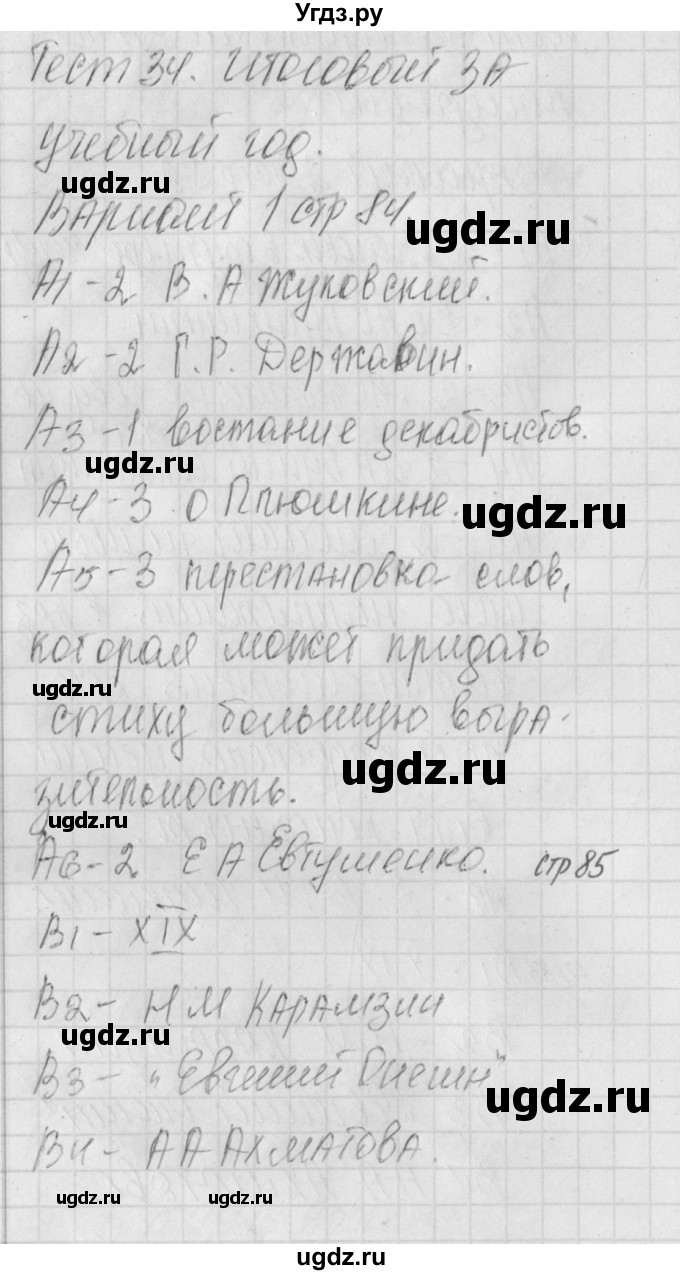 Угдз.ру
Тест 34. Итоговый за
учебный год.
ugdz.ru
Вариант 1 стр 84.
ugdz.ru
А1 - 2 В. А Жуковский.
А2 - 2 Г. Р. Державин.
А3 - 1 востание декабристов.
ugdz.ru
А4 - 3 о Плюшкине.
ugdz.ru
А5 - 3 перестановка слов,
которая может придать
ugdz.ru
стиху большую выра-
ugdz.ru
зительность.
ugdz.ru
А6 - 2 Е А Евтушенко. стр 85
В1 - XIX
В2 - Н М Карамзин
ugdz.ru
В3 - "Евгений Онегин"
ugdz.ru
В4 - А А Ахматова.
ugdz.ru ugdz.ru
ugdz.ru